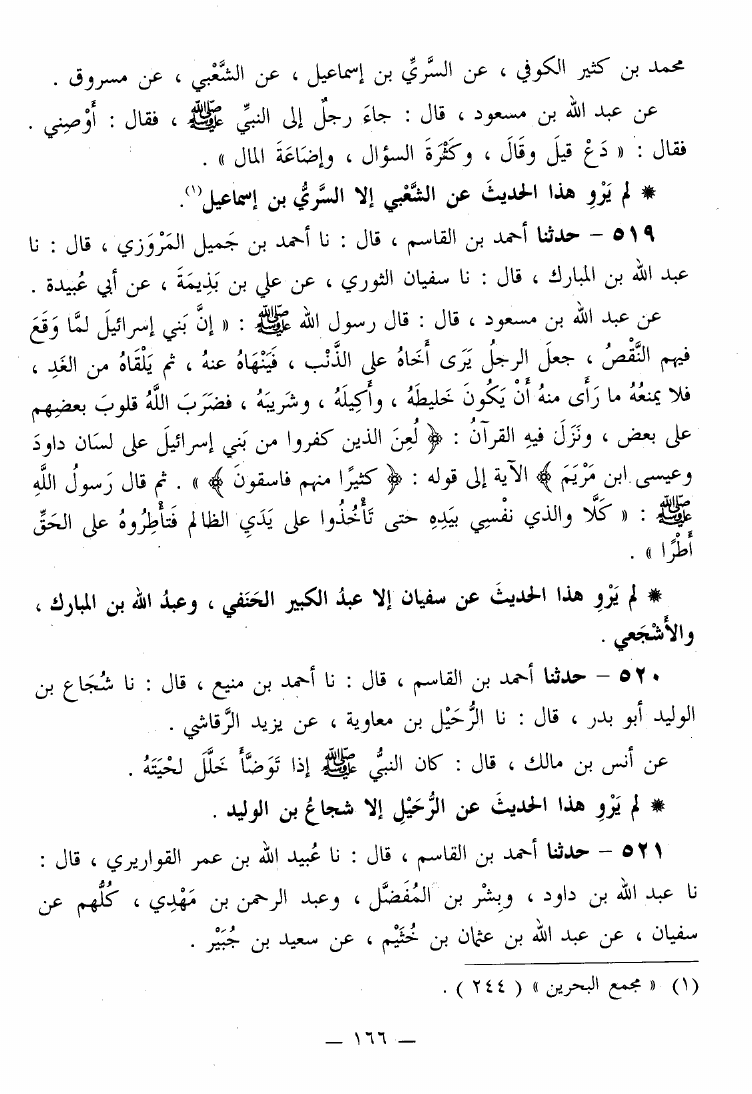 محمد بن كثير الكوفي ، عن السَّريِّ بن إسماعيل ، عن الشَّعْبي ، عن مسروق .
عن عبد الله بن مسعود ، قال : جاءَ رجلٌ إلى النبيِّ ﷺ ، فقال : أَوْصِني .
فقال : « دَعْ قيلَ وقَالَ ، وكَثْرَةَ السؤال ، وإضَاعَةَ المال » .
* لم يَرْوِ هذا الحديثَ عن الشَّعْبي إلا السَّريُّ بن إسماعيل(١).
٥١٩ – حدثنا أحمد بن القاسم ، قال : نا أحمد بن جَميل المَرْوَزي ، قال : نا
عبد الله بن المبارك ، قال : نا سفيان الثوري ، عن علي بن بَذِيمَةَ ، عن أبي عُبيدة .
عن عبد الله بن مسعود ، قال : قال رسول الله ﷺ : « إنَّ بَني إسرائيلَ لمَّا وَقَعَ
فيهم النَّقْصُ ، جعلَ الرجلُ يَرَى أَخَاهُ على الذَّنْب ، فَيَنْهَاهُ عنهُ ، ثم يَلْقَاهُ من الغَدِ ،
فلا يمنعُهُ ما رَأَى منهُ أَنْ يَكُونَ خَليطَهُ ، وأَكِيلَهُ ، وشَريبَهُ ، فضَرَبَ اللَّهُ قلوبَ بعضِهم
على بعض ، ونَزَلَ فيهِ القرآنُ : ﴿ لُعِنَ الذين كفروا من بَني إسرائيلَ على لسَان داودَ
وعيسى ابن مَرْيَمَ ﴾ الآية إلى قوله : ﴿ كثيرًا منهم فاسقونَ ﴾ » . ثم قال رَسولُ اللَّهِ
ﷺ : « كَلَّا والذي نفْسِي بيَدِهِ حتى تَأْخُذُوا على يَدَيِ الظالم فَتأْطِرُوهُ على الحَقِّ
أَطْرًا » .
* لم يَرْوِ هذا الحديثَ عن سفيان إلا عبدُ الكبير الحَنَفي ، وعبدُ الله بن المبارك ،
والأَشْجَعي .
٥٢٠ – حدثنا أحمد بن القاسم ، قال : نا أحمد بن منيع ، قال : نا شُجَاع بن
الوليد أبو بدر ، قال : نا الرُّحَيْل بن معاوية ، عن يزيد الرَّقاشي .
عن أنس بن مالك ، قال : كان النبيُّ ﷺ إذا تَوَضَّأَ خَلَّلَ لحْيَتَهُ .
* لم يَرْوِ هذا الحديثَ عن الرُّحَيْلِ إلا شجاعُ بن الوليد .
٥٢١ – حدثنا أحمد بن القاسم ، قال : نا عُبيد الله بن عمر القواريري ، قال :
نا عبد الله بن داود ، وبِشْر بن المُفَضَّل ، وعبد الرحمن بن مَهْدِي ، كُلُّهم عن
سفيان ، عن عبد الله بن عثمان بن خُثَيْم ، عن سعيد بن جُبَيْر .
(١) « مجمع البحرين » ( ٢٤٤ ) .
– ١٦٦ –